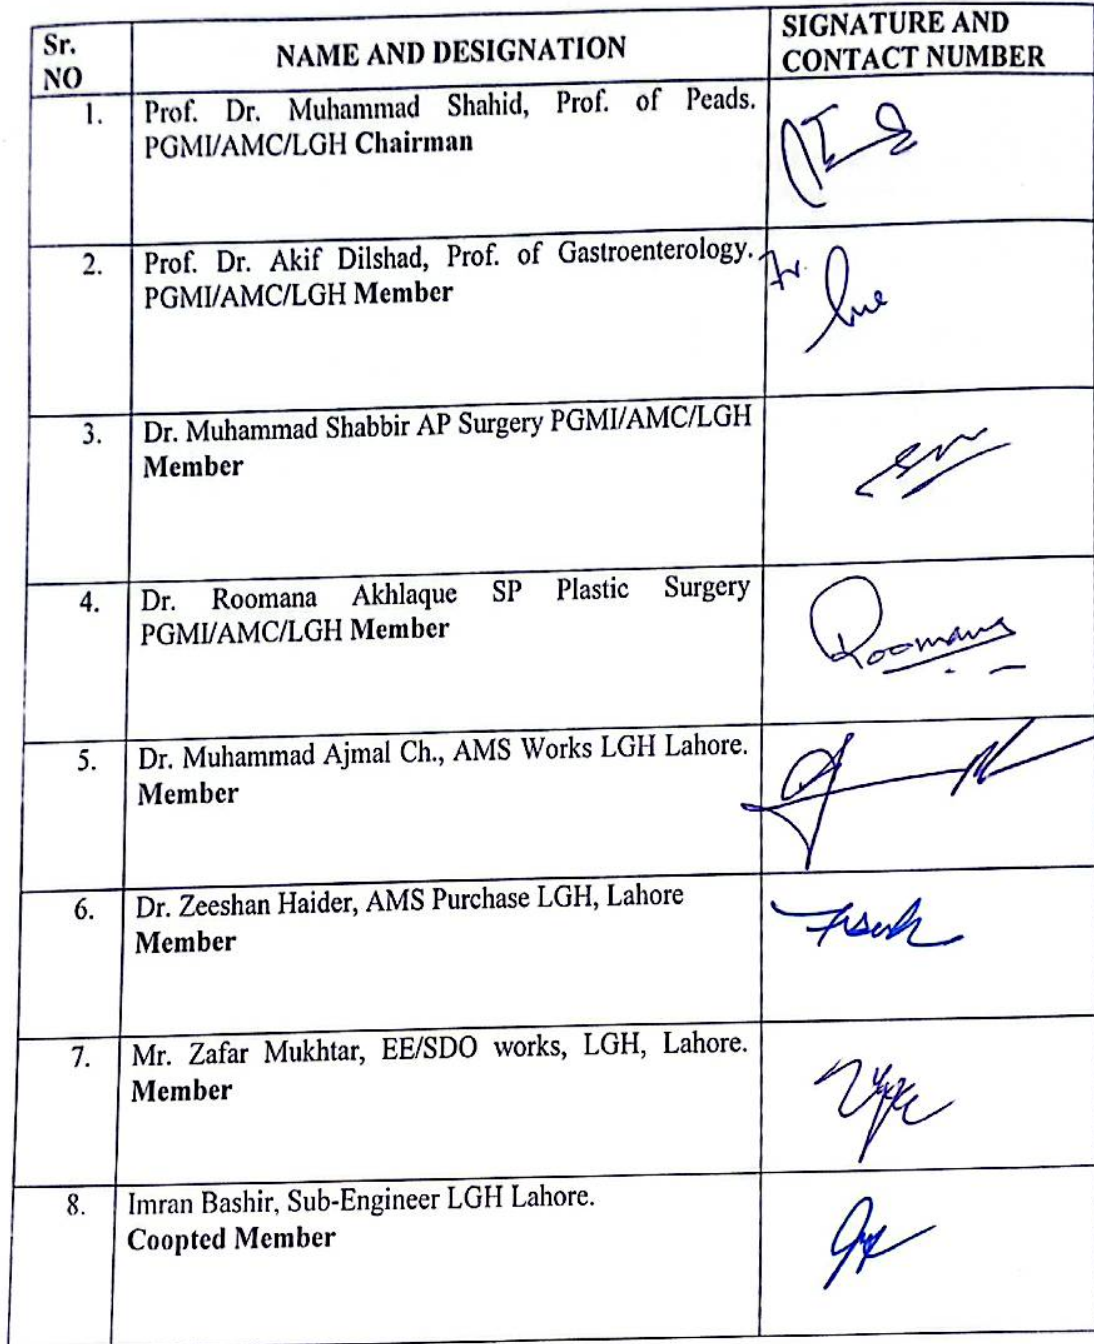 Sr. NO
NAME AND DESIGNATION
SIGNATURE AND CONTACT NUMBER
1.
Prof. Dr. Muhammad Shahid, Prof. of Peads.
PGMI/AMC/LGH Chairman
2.
Prof. Dr. Akif Dilshad, Prof. of Gastroenterology.
PGMI/AMC/LGH Member
3.
Dr. Muhammad Shabbir AP Surgery PGMI/AMC/LGH
Member
4.
Dr. Roomana Akhlaque SP Plastic Surgery
PGMI/AMC/LGH Member
Roomana
5.
Dr. Muhammad Ajmal Ch., AMS Works LGH Lahore.
Member
6.
Dr. Zeeshan Haider, AMS Purchase LGH, Lahore
Member
7.
Mr. Zafar Mukhtar, EE/SDO works, LGH, Lahore.
Member
8.
Imran Bashir, Sub-Engineer LGH Lahore.
Coopted Member